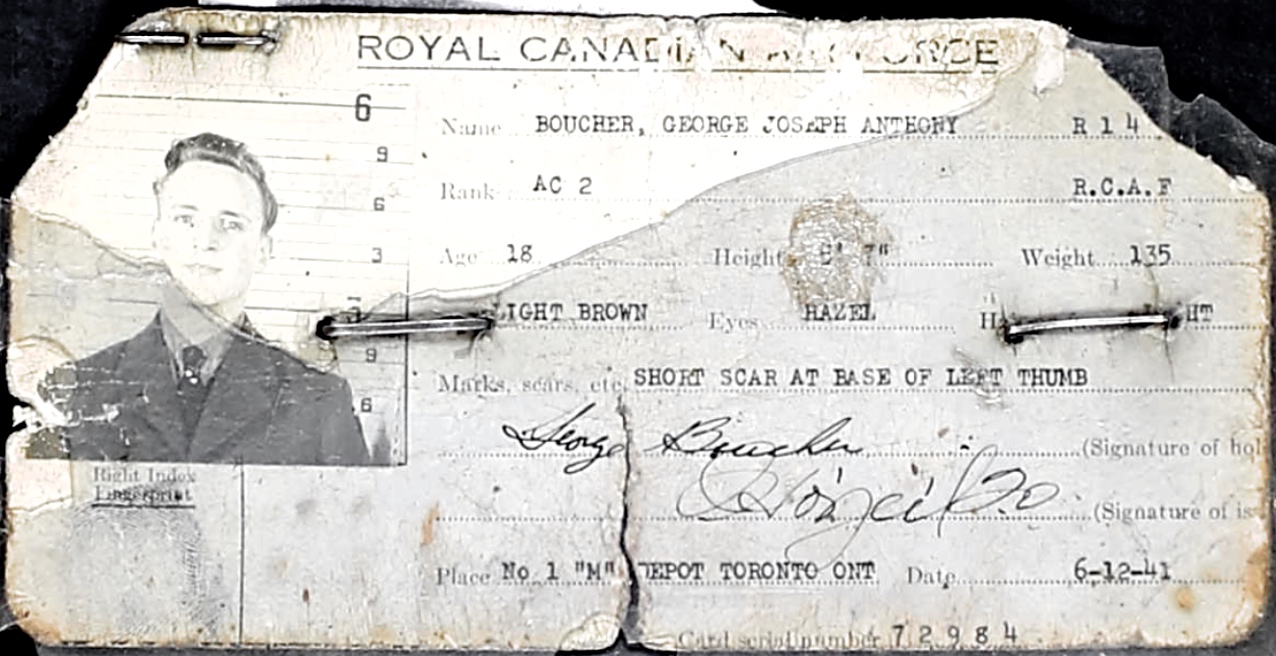 ROYAL CANADIAN AIR FORCE
6
9
6
3
9
6
Name BOUCHER, GEORGE JOSEPH ANTHONY R 14
Rank AC 2 R.C.A.F
Age 18 Height 5' 7" Weight 135
LIGHT BROWN Eyes HAZEL HT
Marks, scars, etc. SHORT SCAR AT BASE OF LEFT THUMB
George Boucher (Signature of hol
(Signature of is
Right Index
Fingerprint
Place No 1 "M" DEPOT TORONTO ONT Date 6-12-41
Card serial number 72984